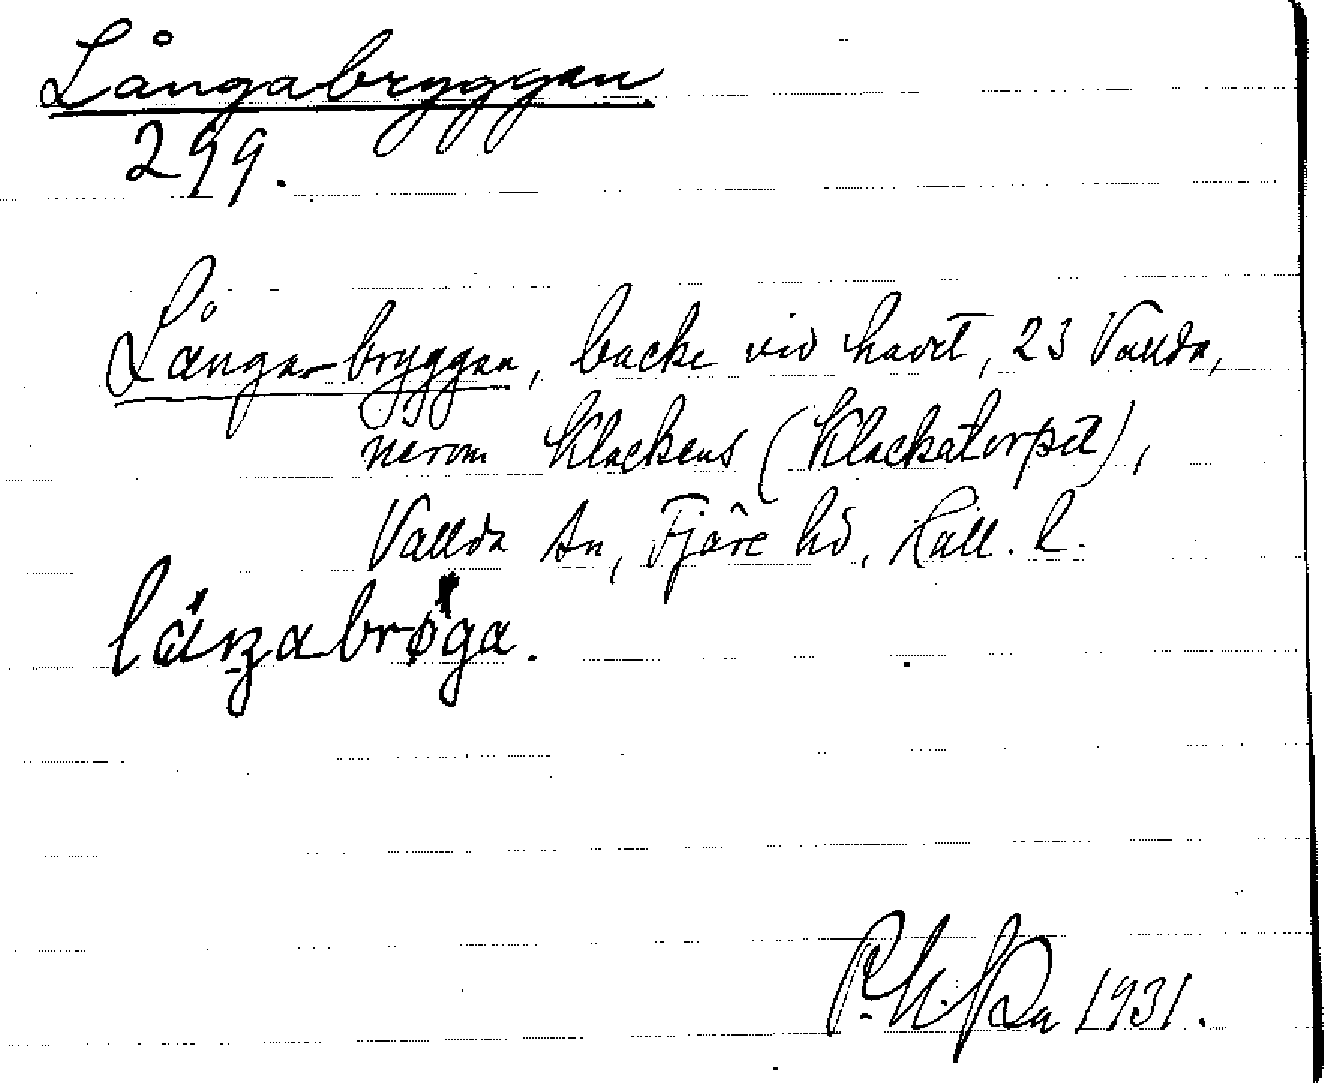 Långabryggan
299.
Långa-bryggan, backe vid havet, 23 Vallda,
nerom Klackens (Klackatorpet),
Vallda sn, Fjäre hd, Hall. l.
långabrøga.
1931.